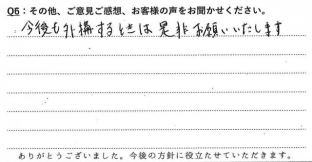 Q6：その他、ご意見ご感想、お客様の声をお聞かせください。
今後も外構するときは是非お願いいたします
ありがとうございました。今後の方針に役立たせていただきます。